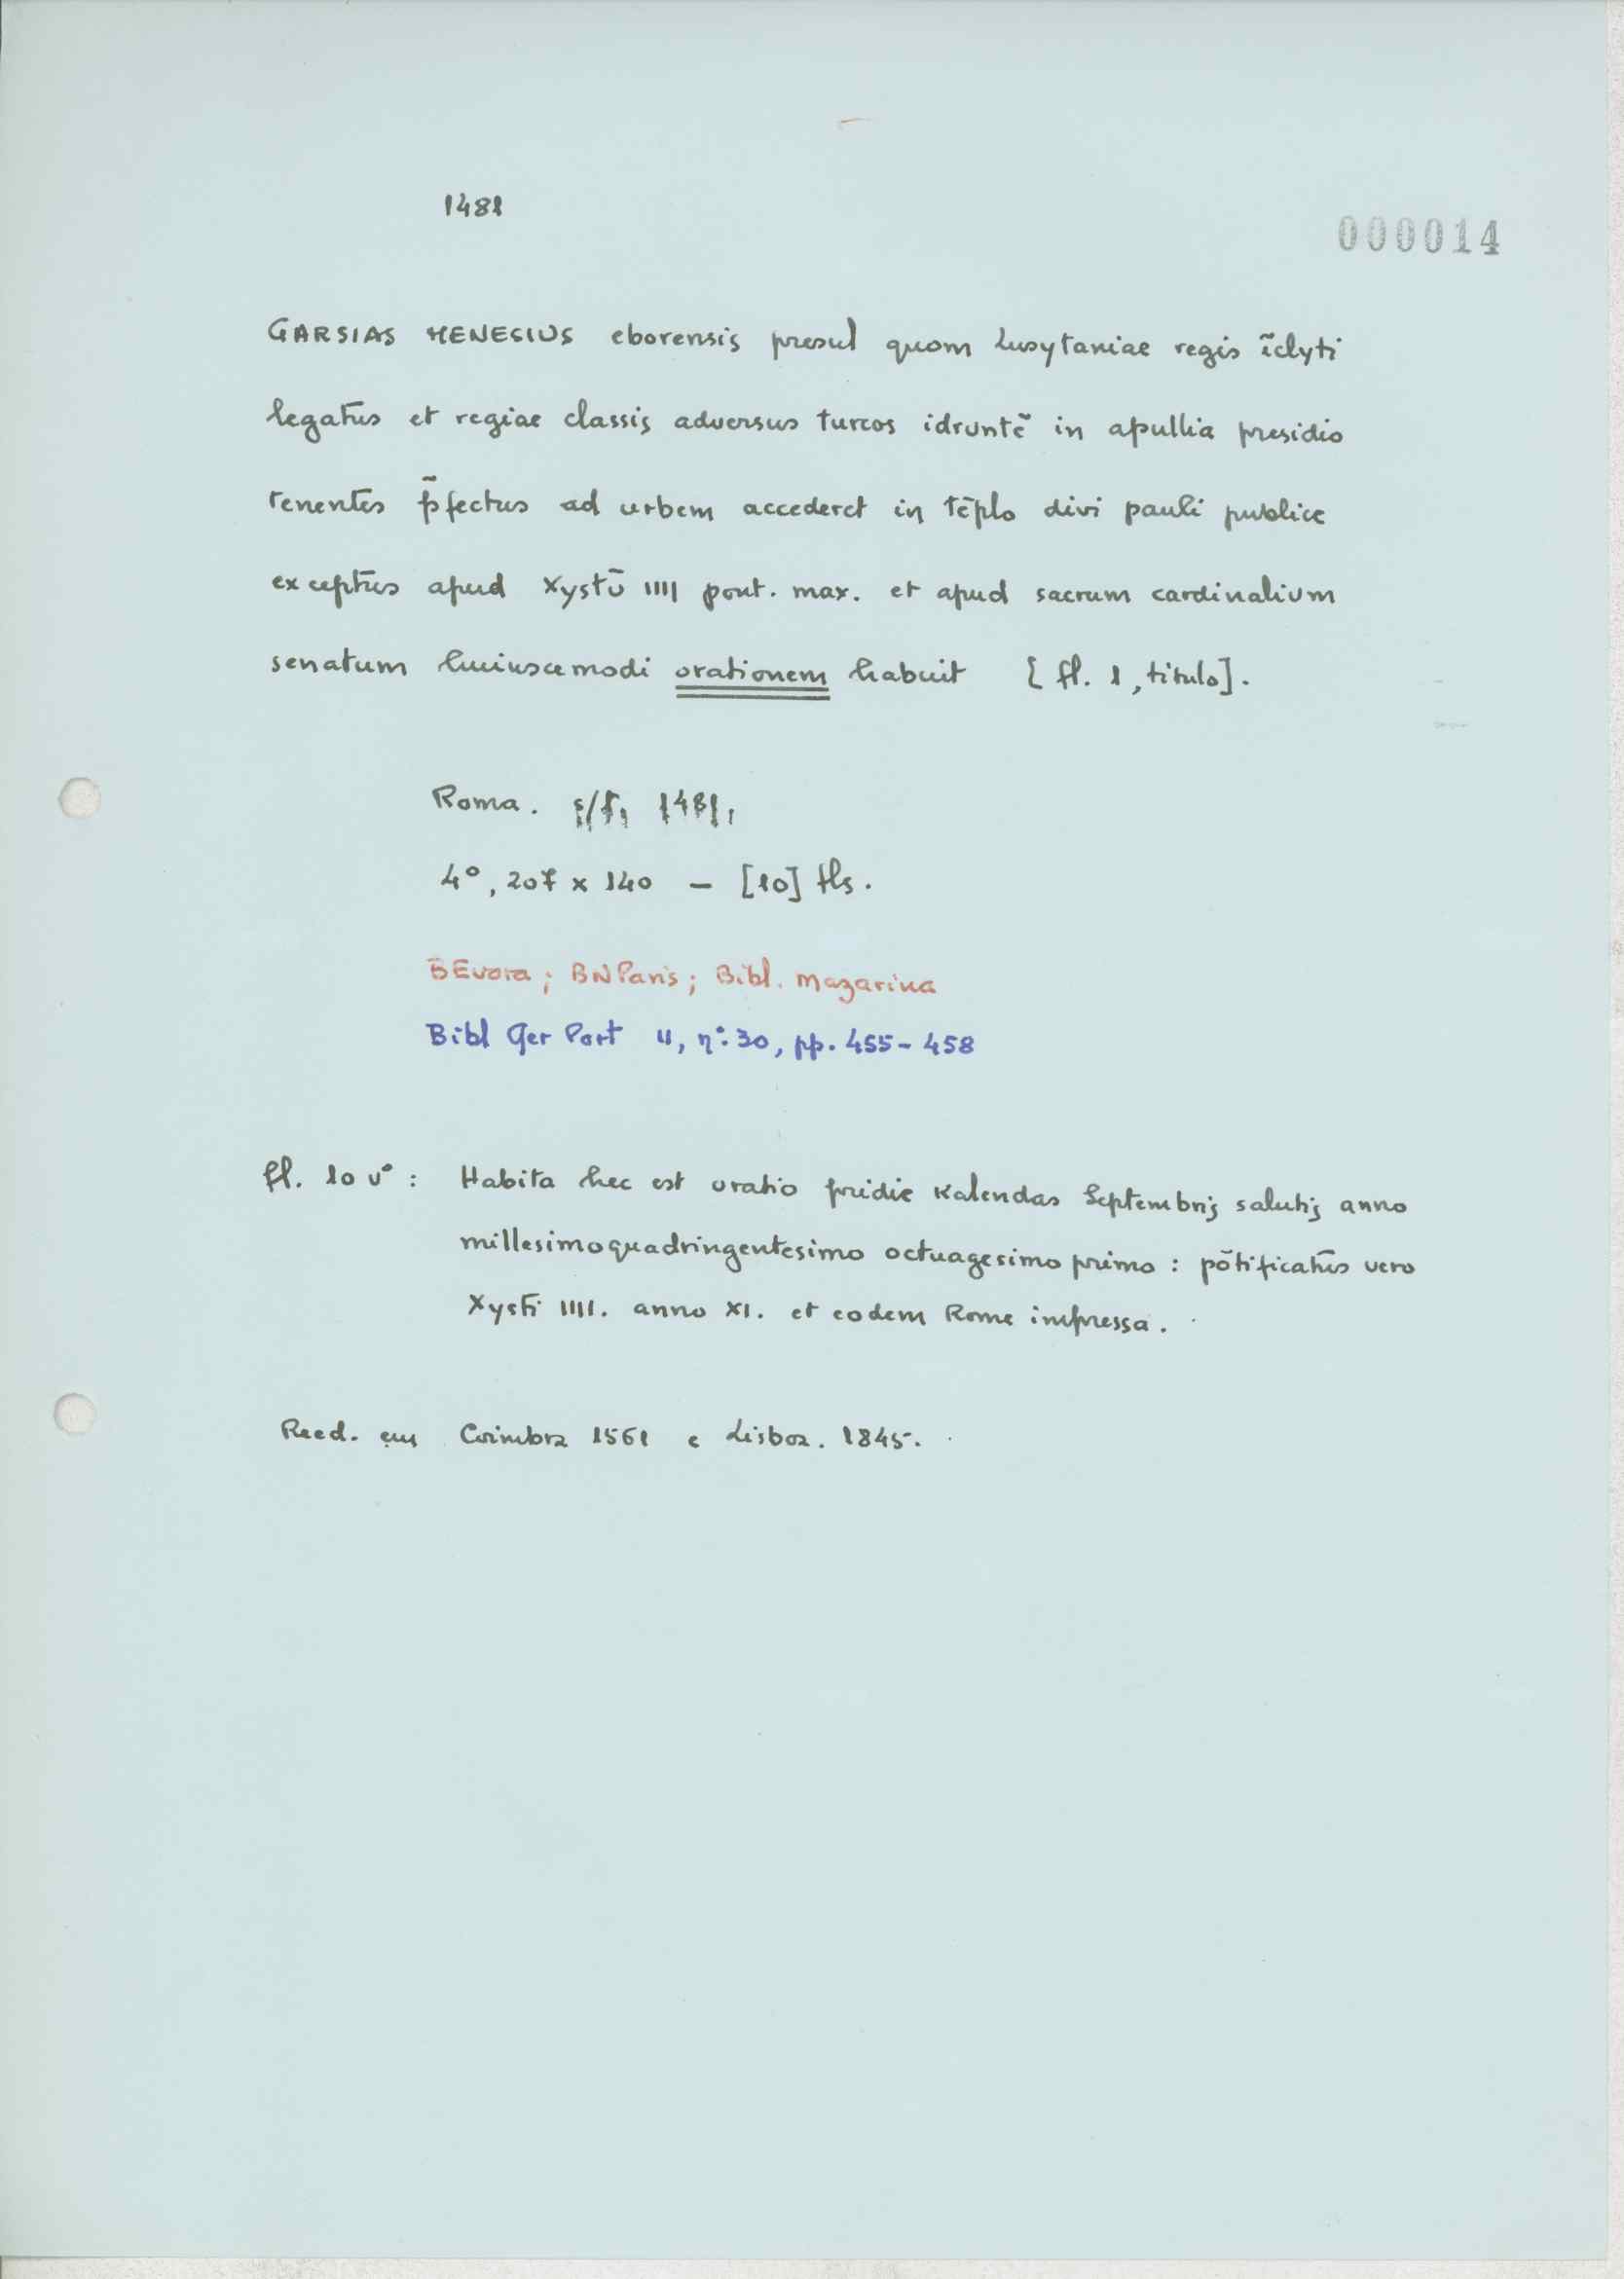 1481
000014
GARSIAS MENESIUS eborensis presul quom Lusytaniae regis ĩclyti
legatus et regiae classis adversus turcos idruntẽ in apullia presidio
tenentes p̃fectus ad urbem accederet in tẽplo divi pauli publice
exceptus apud Xystũ IIII pont. max. et apud sacrum cardinalium
senatum huiuscemodi orationem habuit [fl. 1, titulo].
Roma. s/t, 1481,
4º, 207 x 140 – [10] fls.
BEvora; BNParis; Bibl. Mazarina
Bibl Ger Port II, nº 30, pp. 455-458
fl. 10 vº: Habita hec est oratio pridie Kalendas Septembris salutis anno
millesimoquadringentesimo octuagesimo primo: põtificatus vero
Xysti IIII. anno XI. et eodem Rome impressa.
Reed. em Coimbra 1561 e Lisboa. 1845.